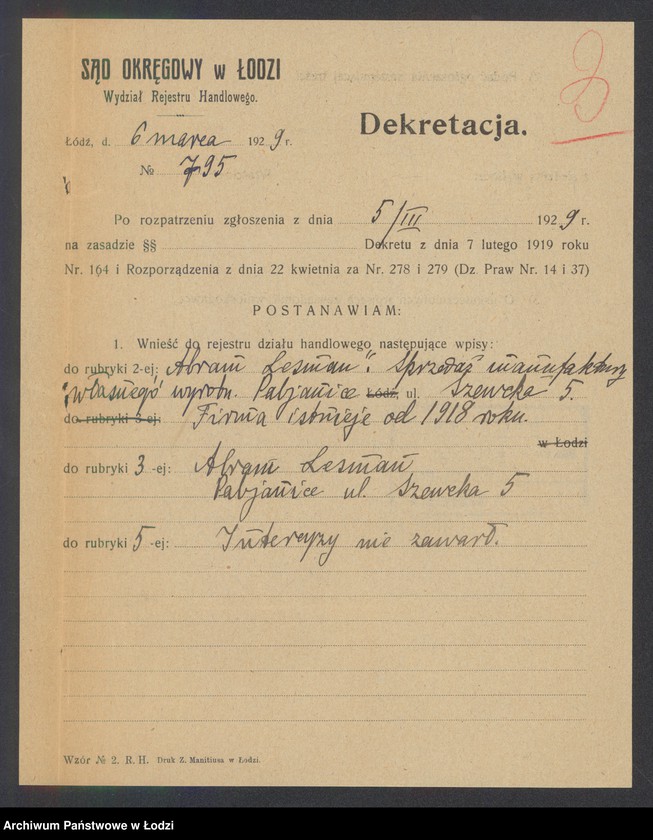 SĄD OKRĘGOWY w ŁODZI
Wydział Rejestru Handlowego.
Dekretacja.
Łódź, d. 6 marca 1929 r.
№ 795
Po rozpatrzeniu zgłoszenia z dnia 5/III 1929 r.
na zasadzie §§ Dekretu z dnia 7 lutego 1919 roku
Nr. 164 i Rozporządzenia z dnia 22 kwietnia za Nr. 278 i 279 (Dz. Praw Nr. 14 i 37)
POSTANAWIAM:
1. Wnieść do rejestru działu handlowego następujące wpisy:
do rubryki 2-ej: „Abram Lesman". Sprzedaż manufaktury
własnego wyrobu. Pabjanice Łódź, ul. Szewcka 5.
do rubryki 3-ej: Firma istnieje od 1918 roku.
w Łodzi
do rubryki 3-ej: Abram Lesman
Pabjanice ul. Szewcka 5
do rubryki 5-ej: Intercyzy nie zawarł.
Wzór № 2. R. H. Druk Z. Manitiusa w Łodzi.
Archiwum Państwowe w Łodzi